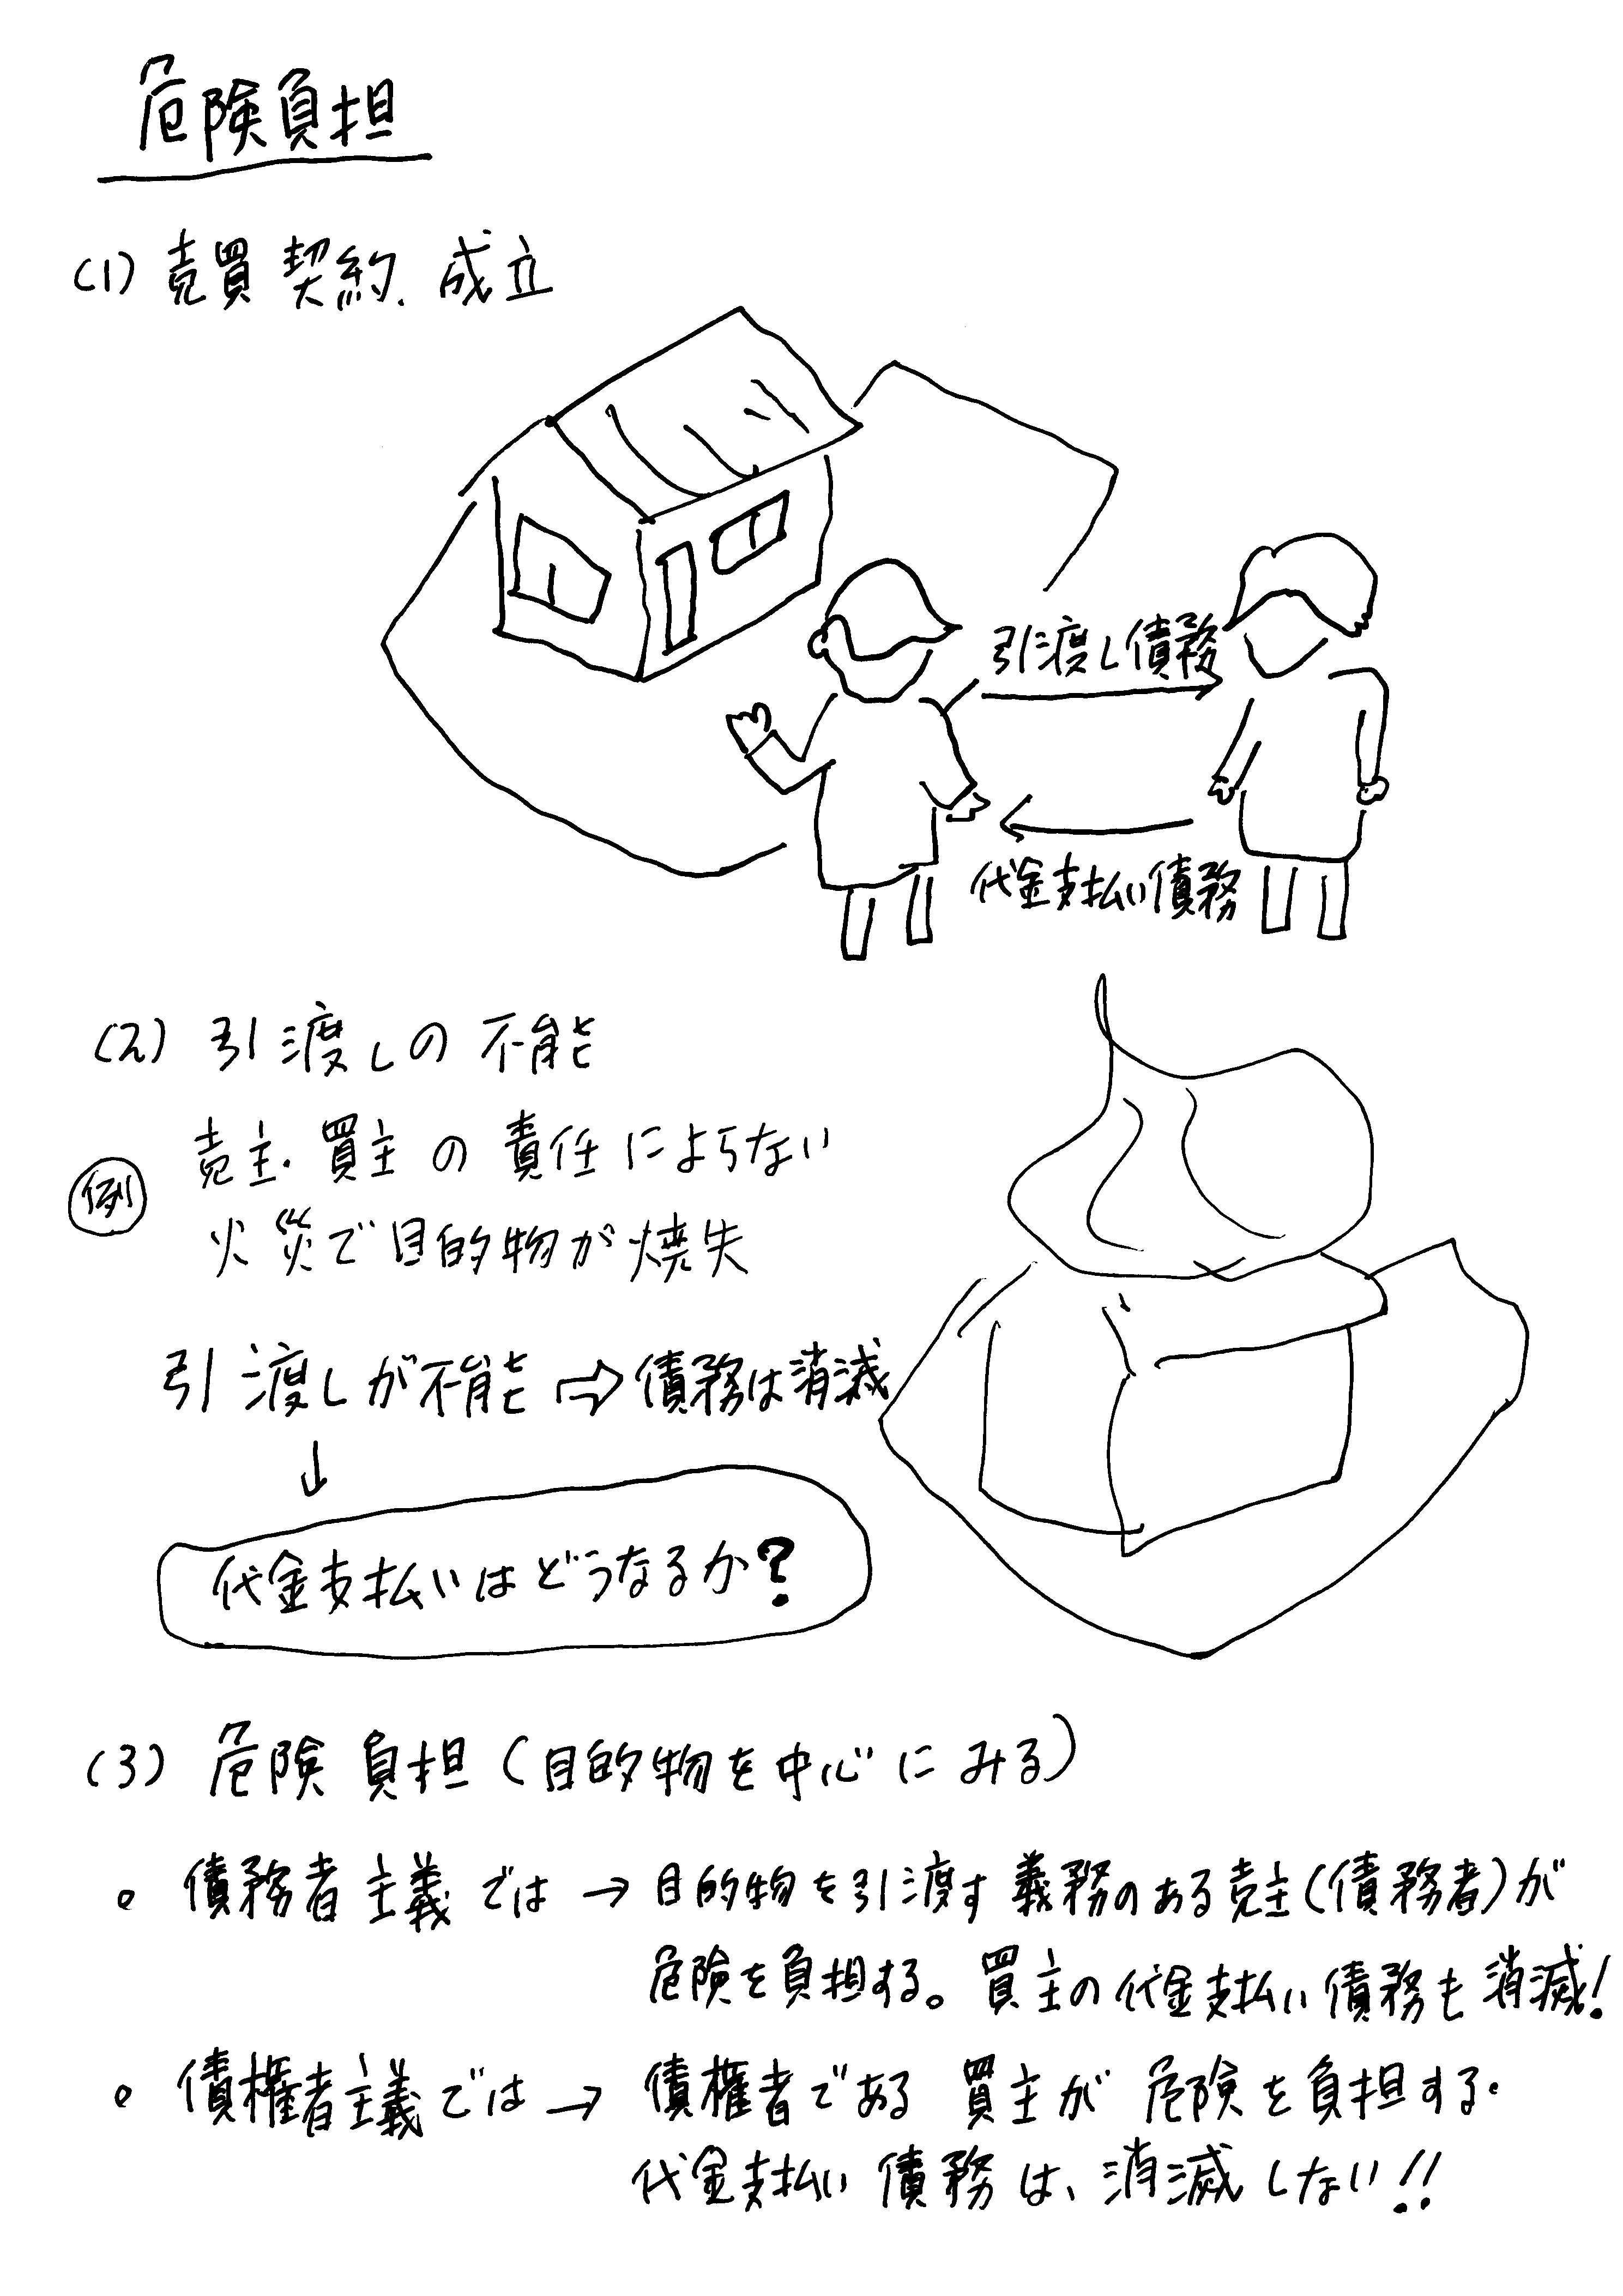 危険負担
(1) 売買契約.成立
引渡し債務
代金支払い債務
(2) 引渡しの不能
例
売主.買主の責任によらない
火災で目的物が焼失
引渡しが不能⇨債務は消滅
↓
代金支払いはどうなるか?
(3) 危険負担(目的物を中心にみる)
。債務者主義では→目的物を引渡す義務のある売主(債務者)が
危険を負担する。買主の代金支払い債務も消滅!
。債権者主義では→債権者である買主が危険を負担する.
代金支払い債務は、消滅しない!!